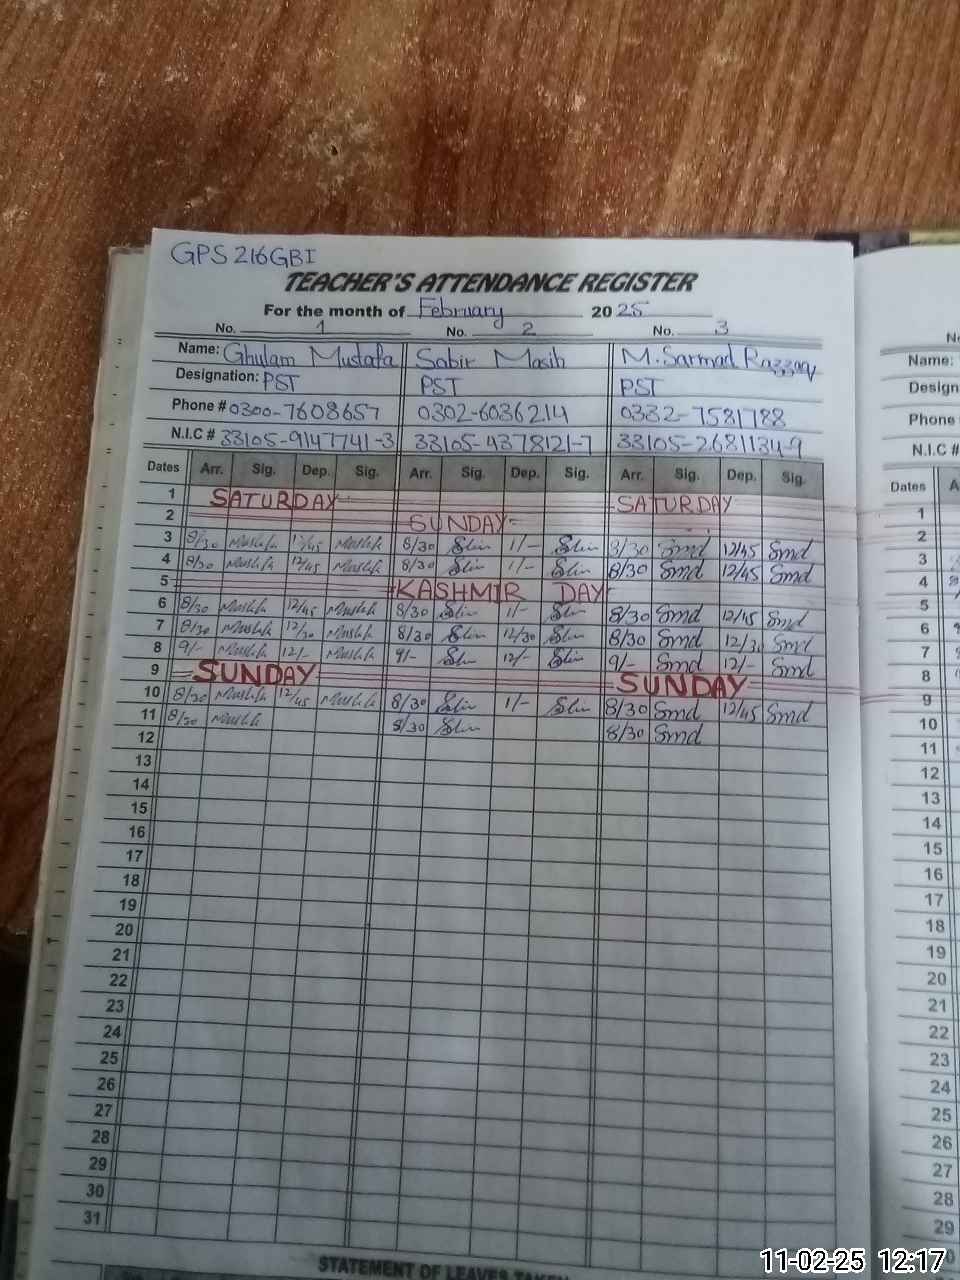 GPS 216GBI
TEACHER'S ATTENDANCE REGISTER
For the month of February 2025
No. 1 No. 2 No. 3
Name: Ghulam Mustafa Sabir Masih M. Sarmad Razzaq
Designation: PST PST PST
Phone # 0300-7608657 0302-6036214 0332-7581788
N.I.C # 33105-9147741-3 33105-4378121-7 33105-2681134-9
Dates Arr. Sig. Dep. Sig. Arr. Sig. Dep. Sig. Arr. Sig. Dep. Sig.
1 SATURDAY SATURDAY
2 SUNDAY
3 8/30 12/45 8/30 1/- 8/30 Smd 12/45 Smd
4 8/30 12/45 8/30 1/- 8/30 Smd 12/45 Smd
5 KASHMIR DAY
6 8/30 12/45 8/30 1/- 8/30 Smd 12/45 Smd
7 8/30 12/30 8/30 12/30 8/30 Smd 12/30 Smd
8 9/- 12/- 9/- 12/- 9/- Smd 12/- Smd
9 SUNDAY SUNDAY
10 8/30 12/45 8/30 1/- 8/30 Smd 12/45 Smd
11 8/30 8/30 8/30 Smd
12
13
14
15
16
17
18
19
20
21
22
23
24
25
26
27
28
29
30
31
STATEMENT OF LEAVES TAKEN
Name:
Design
Phone
N.I.C #
Dates A
1
2
3
4
5
6
7
8
9
10
11
12
13
14
15
16
17
18
19
20
21
22
23
24
25
26
27
28
29
11-02-25 12:17